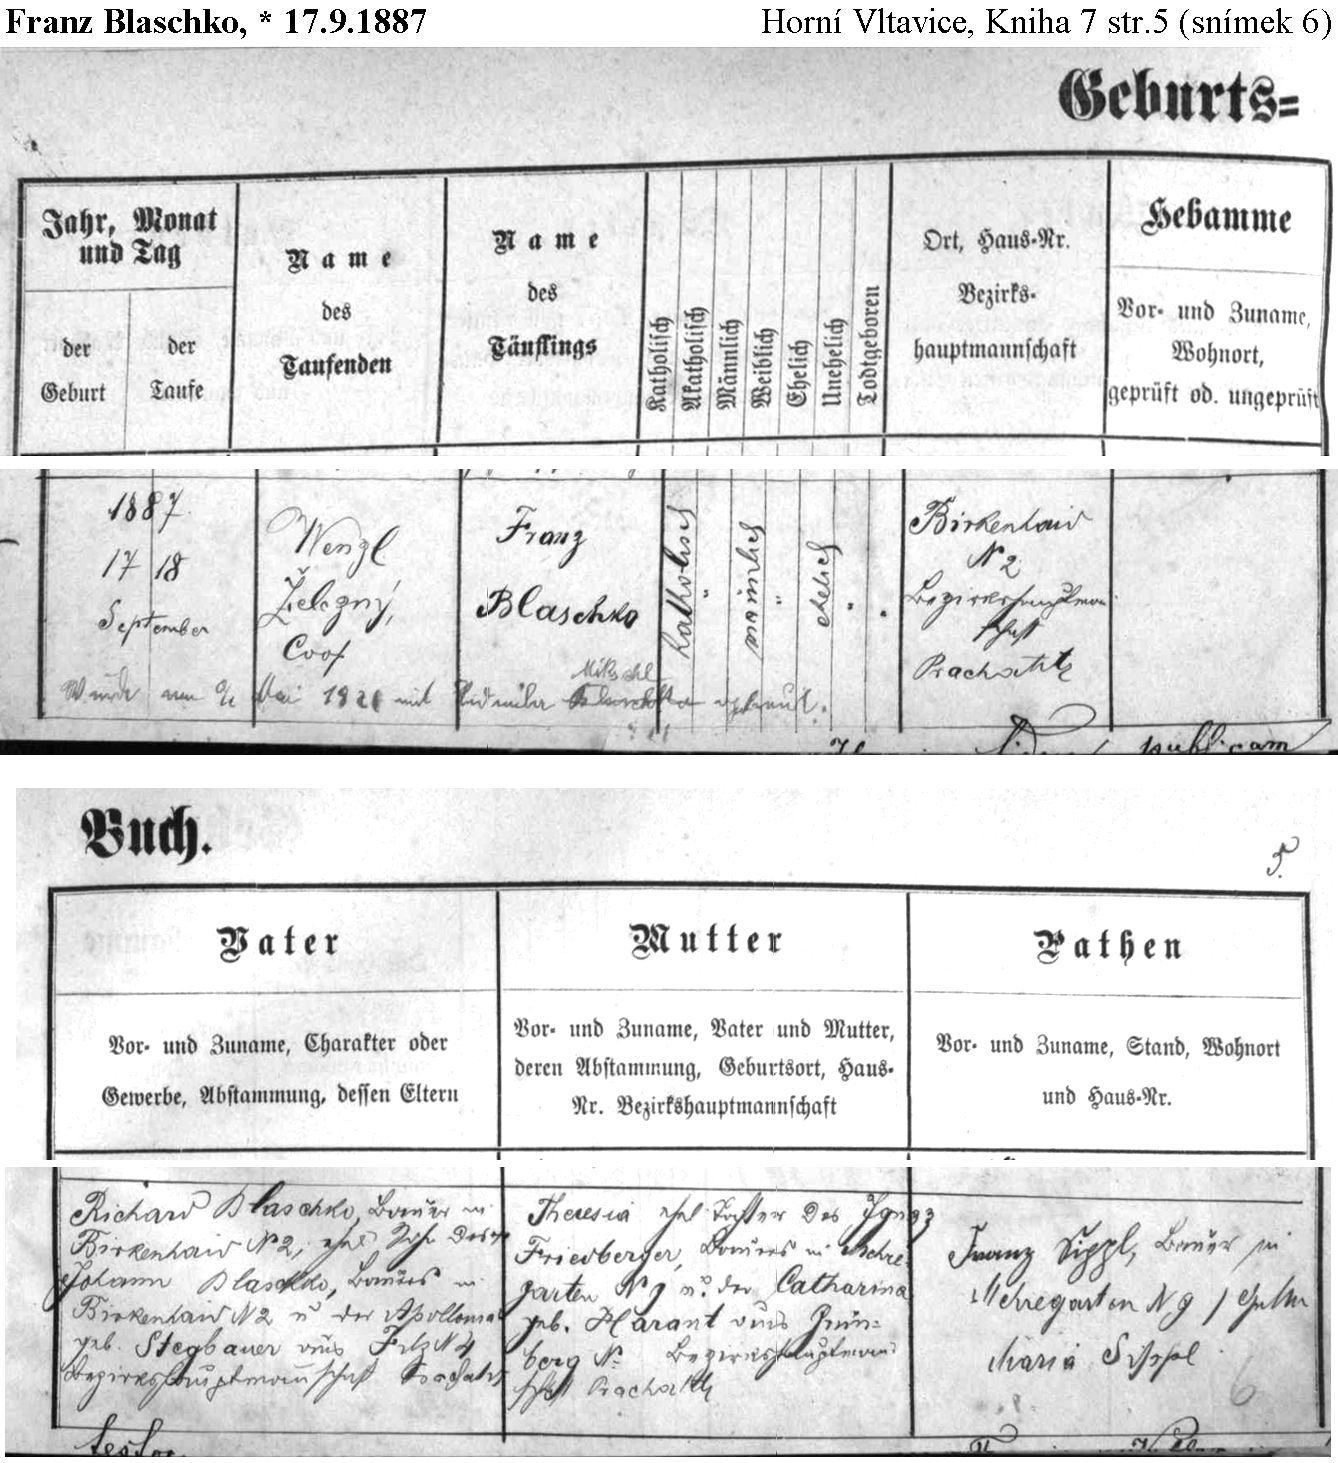 Franz Blaschko, * 17.9.1887
Horní Vltavice, Kniha 7 str.5 (snímek 6)
Geburts=
Jahr, Monat
und Tag
der
Geburt
der
Taufe
Name
des
Taufenden
Name
des
Täuflings
Katholisch
Akatholisch
Männlich
Weiblich
Ehelich
Unehelich
Todtgeboren
Ort, Haus-Nr.
Bezirks-
hauptmannschaft
Hebamme
Vor- und Zuname,
Wohnort,
geprüft od. ungeprüft
1887
17 18
September
Wenzl
Železný,
Coop
Franz
Blaschko
katholisch
"
männlich
"
ehelich
"
"
Birkenhaid
N 2
Bezirkshauptman
schaft
Prachatitz
Mikschl
Wurde am Mai mit Ludmila getraut.
publicam
Buch.
5.
Vater
Vor- und Zuname, Charakter oder
Gewerbe, Abstammung, dessen Eltern
Mutter
Vor- und Zuname, Vater und Mutter,
deren Abstammung, Geburtsort, Haus-
Nr. Bezirkshauptmannschaft
Pathen
Vor- und Zuname, Stand, Wohnort
und Haus-Nr.
Richard Blaschko, Bauer in
Birkenhaid N 2, ehel Sohn des
Johann Blaschko, Bauers in
Birkenhaid N 2 u der Apollonia
geb. Stegbauer aus Filz N 4
Bezirkshauptmannschaft Prachatitz
Theresia ehel Tochter des Ignaz
Friedberger, Bauers in Mehre-
garten N 9 u. der Catharina
geb. Harant aus Grün-
berg N Bezirkshauptmann
schaft Prachatitz
Franz Sippl, Bauer in
Mehregarten N 9
Maria Sippl
6
testor